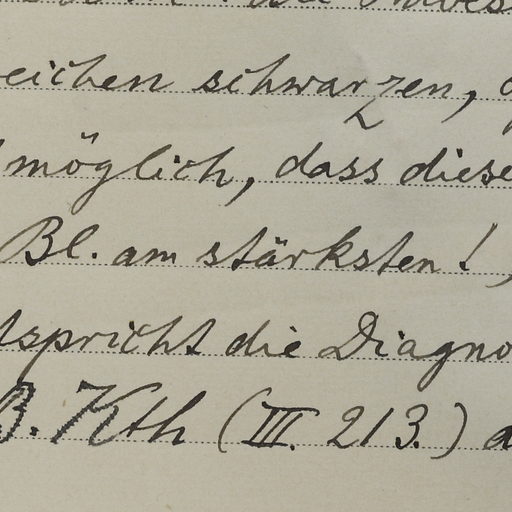 eichen schwarzen,
möglich, dass diese
Bl. am stärksten!,
tspricht die Diagno
B. Kth (III. 213.) a